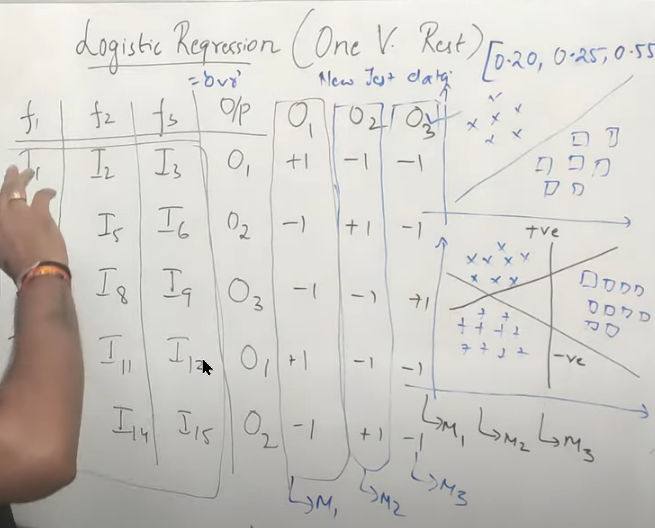 Logistic Regression (One V. Rest) [0.20, 0.25, 0.55
= 'ovr' New Test data
f1 f2 f3 O/p O1 O2 O3
I1 I2 I3 O1 +1 -1 -1
I5 I6 O2 -1 +1 -1
I8 I9 O3 -1 -1 +1
I11 I12 O1 +1 -1 -1
I14 I15 O2 -1 +1 -1
M1 M2 M3
+ve
-ve
M1 M2 M3